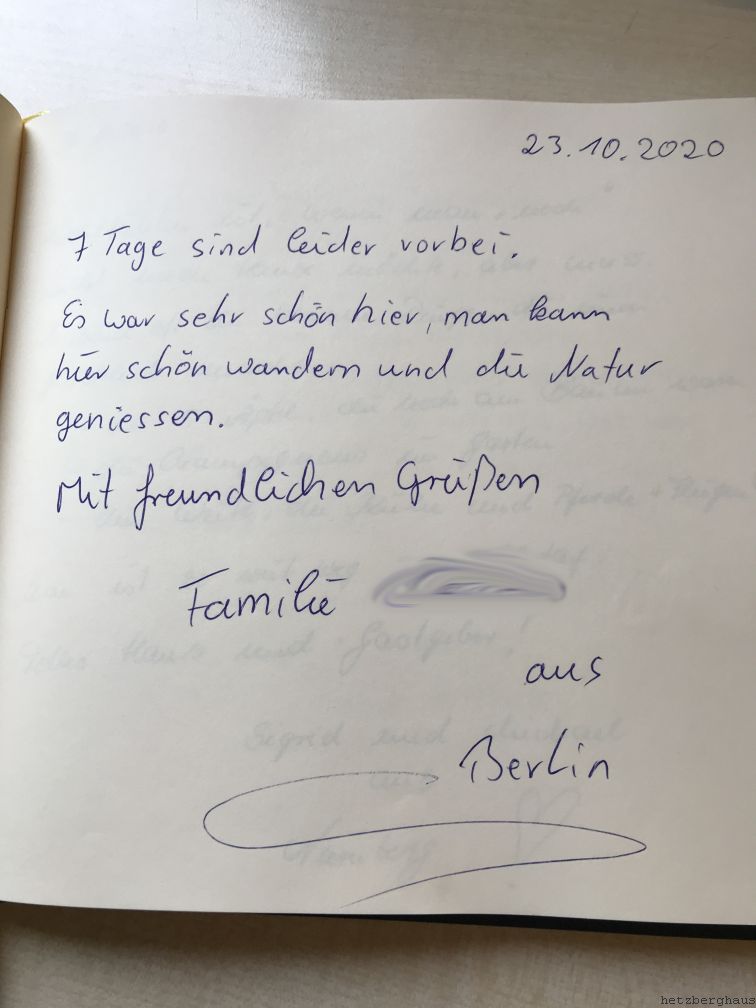 23.10.2020
7 Tage sind leider vorbei.
Es war sehr schön hier, man kann
hier schön wandern und die Natur
geniessen.
Mit freundlichen Grüßen
Familie
aus
Berlin
hetzberghaus